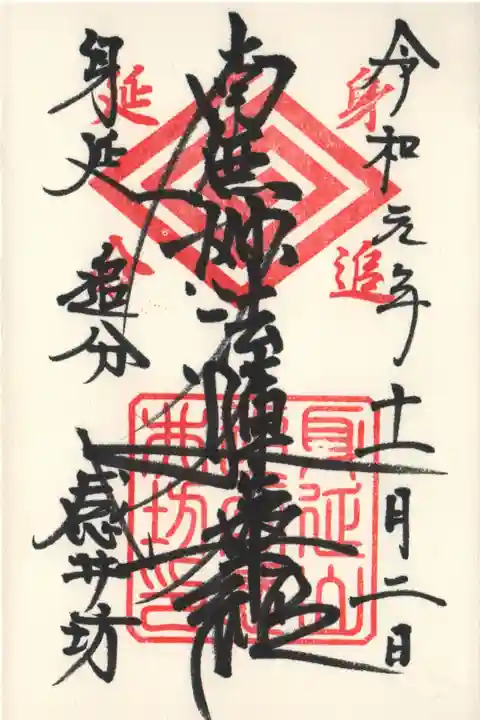 令和元年十一月二日
南無妙法蓮華経
身延 追分 感井坊
身延
追分